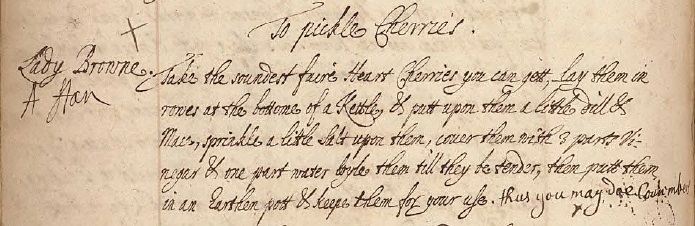 To pickle Cherries.
Lady Browne.
Take the soundest faire Heart Cherries you can gett, Lay them in
rowes at the bottome of a Kettle, & putt upon them a little dill &
Mace, sprinkle a little Salt upon them, cover them with 3 parts Vi-
negar & one part water boyle them till they be tender, then putt them
in an Earthen pott & keepe them for your use. thus you may doe